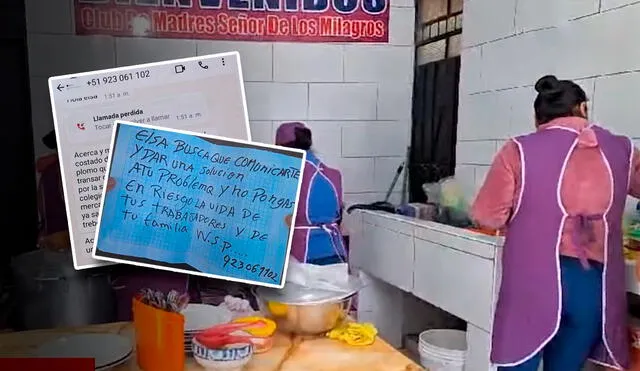 BIENVENIDOS
Club De Madres Señor De Los Milagros
+51 923 061 102
Hola elsa
1:51 a. m.
Llamada perdida
Tocar para volver a llamar
1:51 a. m.
Acerca y m
costado d
plomo q
transar
por la s
colegi
merca
ya sa
treb
Ac
ELSA BUSCA QUE COMUNICARTE
Y DAR UNA SOLUCIÓN
A TU PROBLEMA Y NO PONGAS
EN RIESGO LA VIDA DE
TUS TRABAJADORES Y DE
TU FAMILIA W.S.P....
923061102